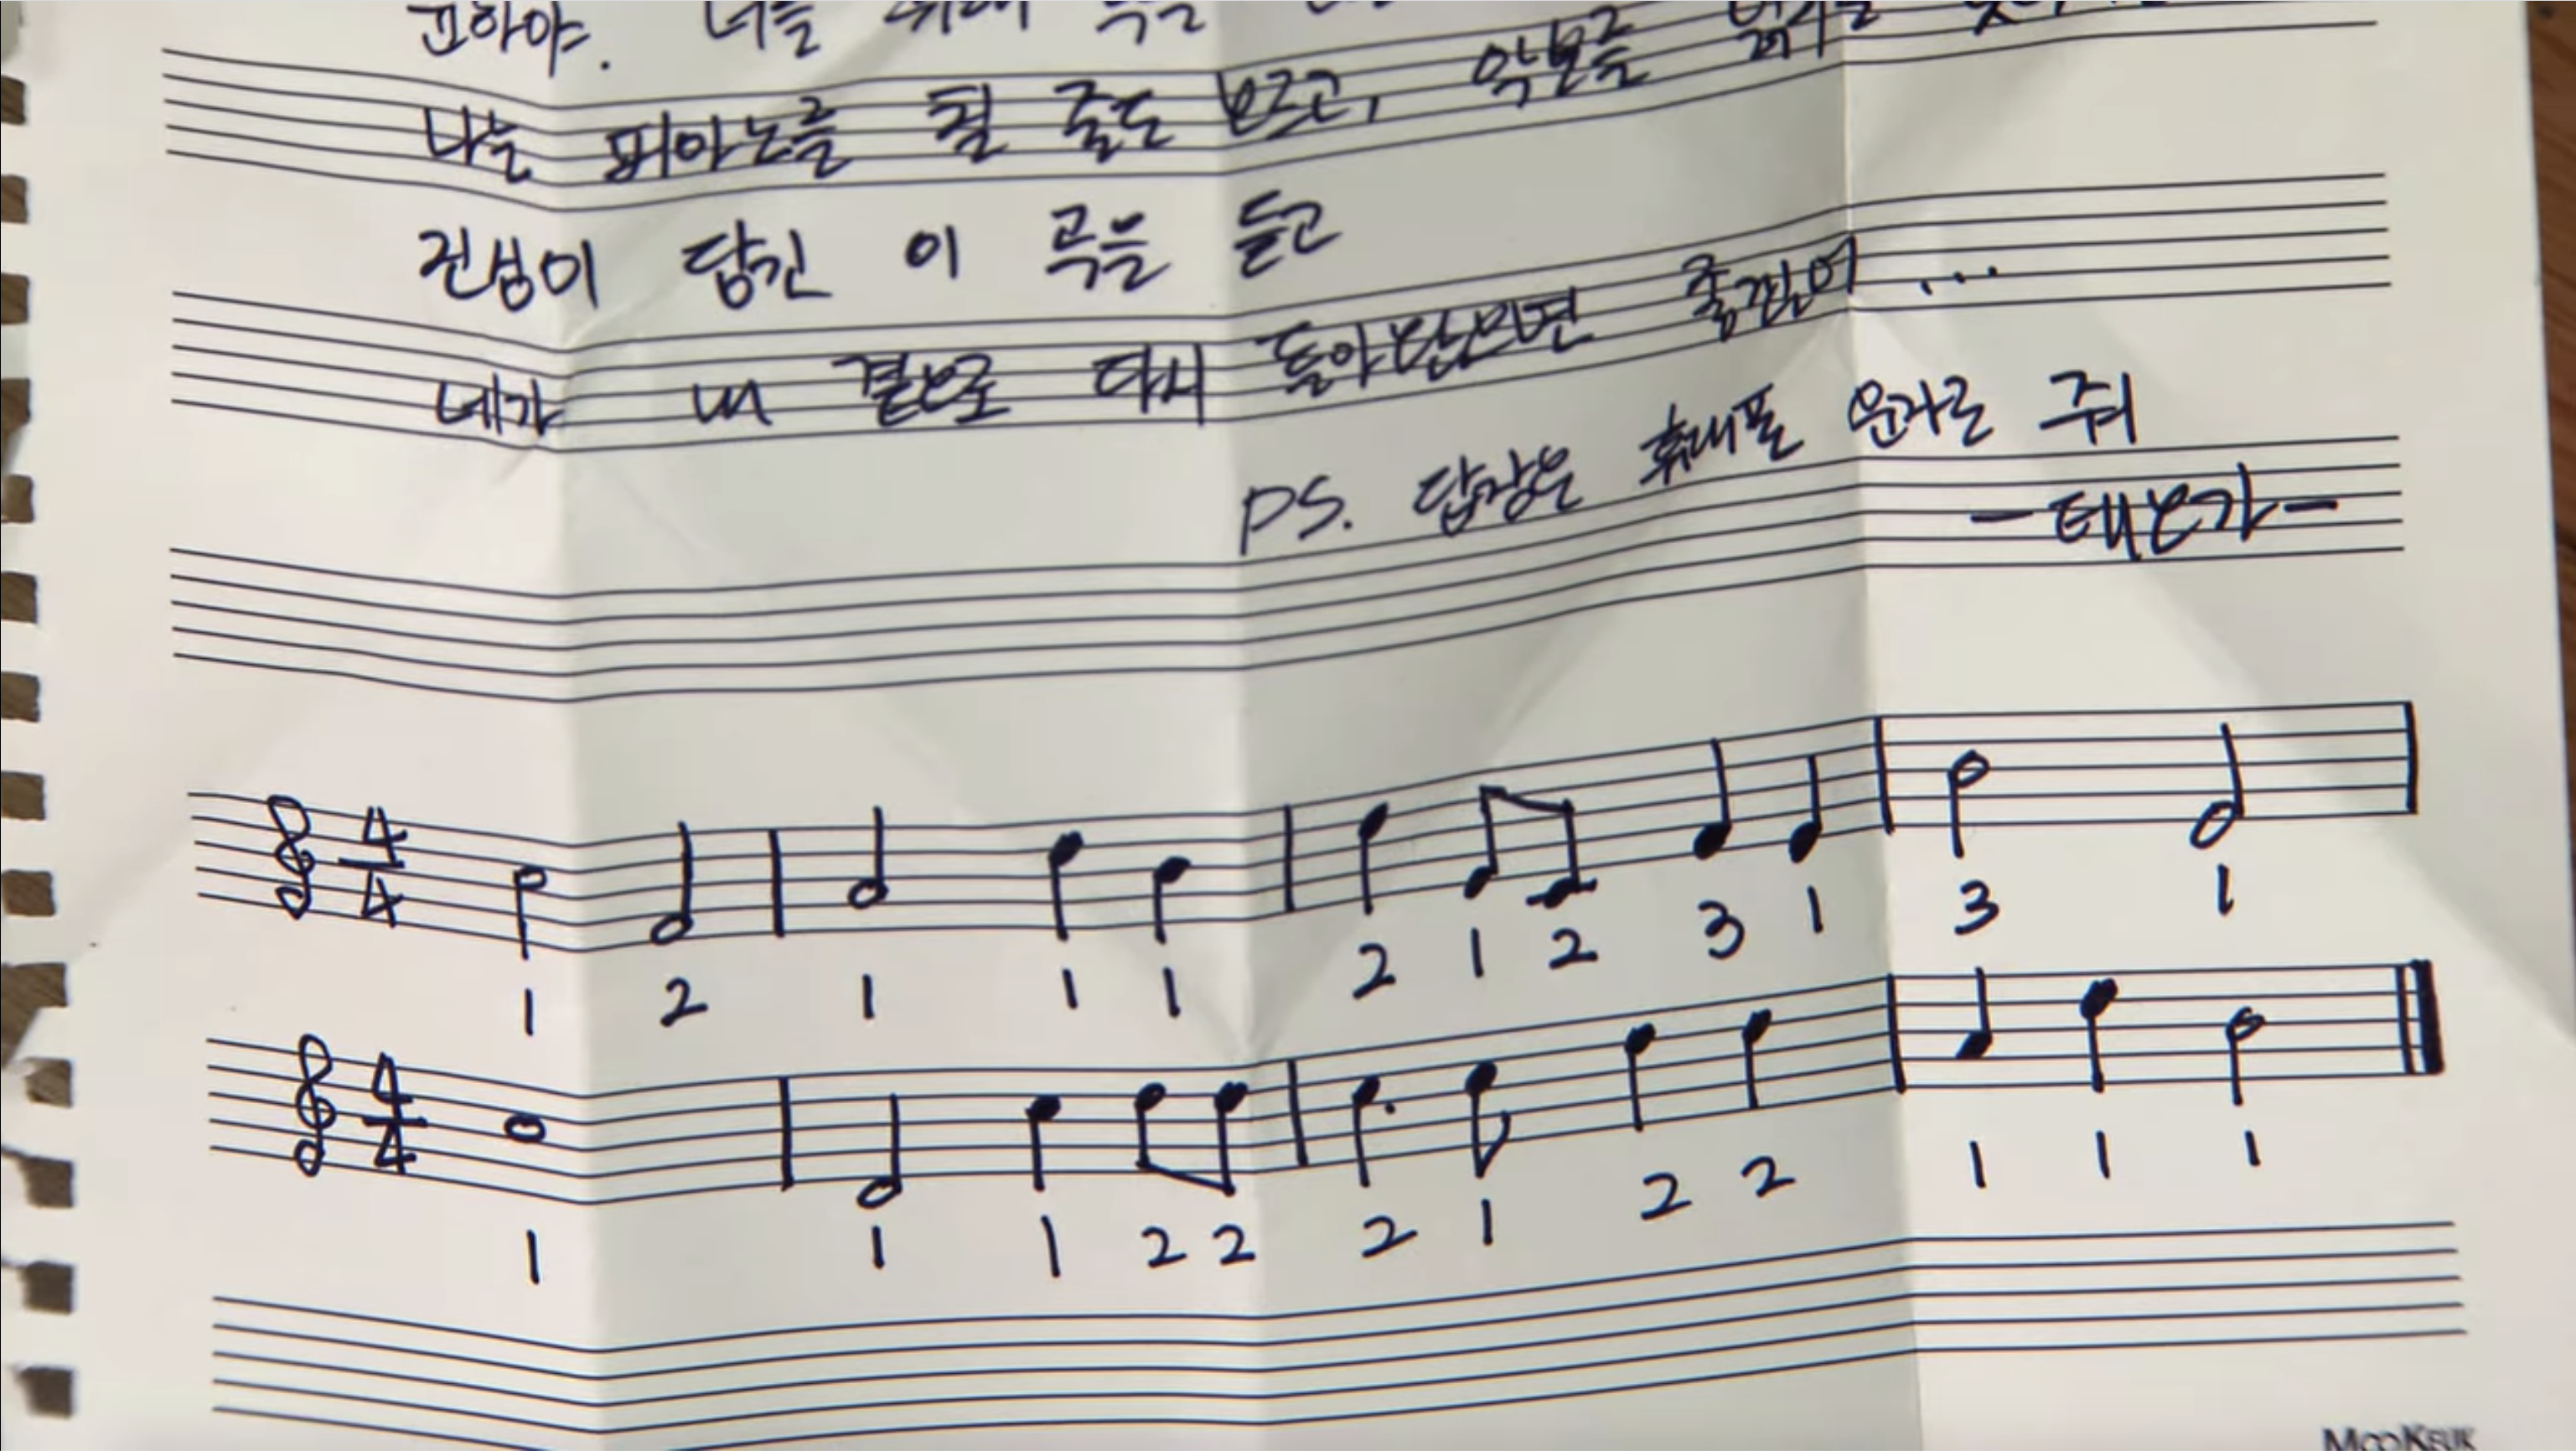 고하야. 너를 위해 곡을
나는 피아노를 칠 줄도 모르고, 악보를 읽지를
진심이 담긴 이 곡을 듣고
네가 내 곁으로 다시 돌아왔으면 좋겠어...
PS. 답장은 휴대폰 문자로 줘
-태보가-
4
4
1 2 1 1 1 2 1 2 3 1 3 1
4
4
1 1 1 2 2 2 1 2 2 1 1 1
MooKeuk